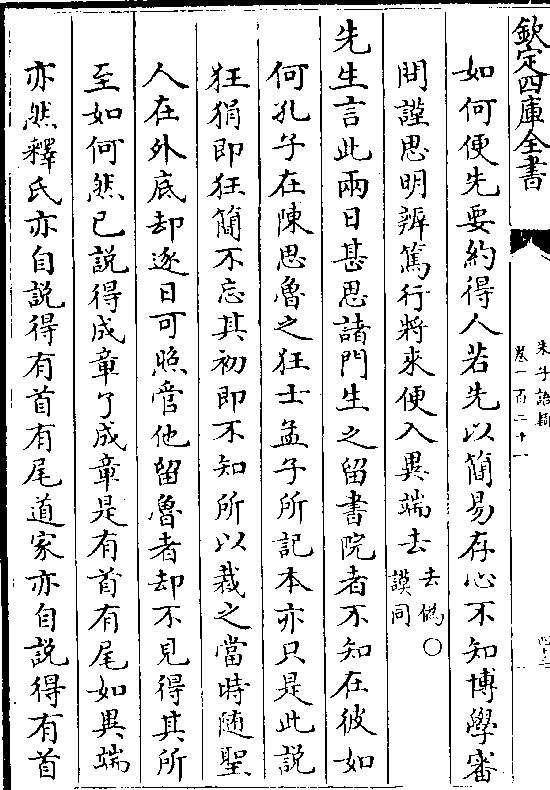 欽定四庫全書
朱子語類
卷一百二十一
如何便先要約得人若先以簡易存心不知博學審
問謹思明辨篤行將來便入異端去去偽○
謨同
先生言此兩日甚思諸門生之留書院者不知在彼如
何孔子在陳思魯之狂士孟子所記本亦只是此説
狂狷即狂簡不忘其初即不知所以裁之當時随聖
人在外底却逐日可照管他留魯者却不見得其所
至如何然已説得成章了成章是有首有尾如異端
亦然釋氏亦自説得有首有尾道家亦自説得有首